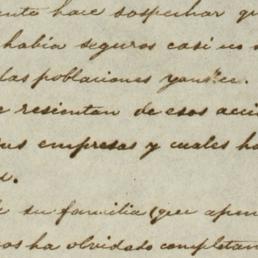 ento hace sospechar qu
habia seguros casi en
las poblaciones yankee.
e resientan de esos acci
us empresas y cuales ha
su familia (que apen
os ha olvidado completam